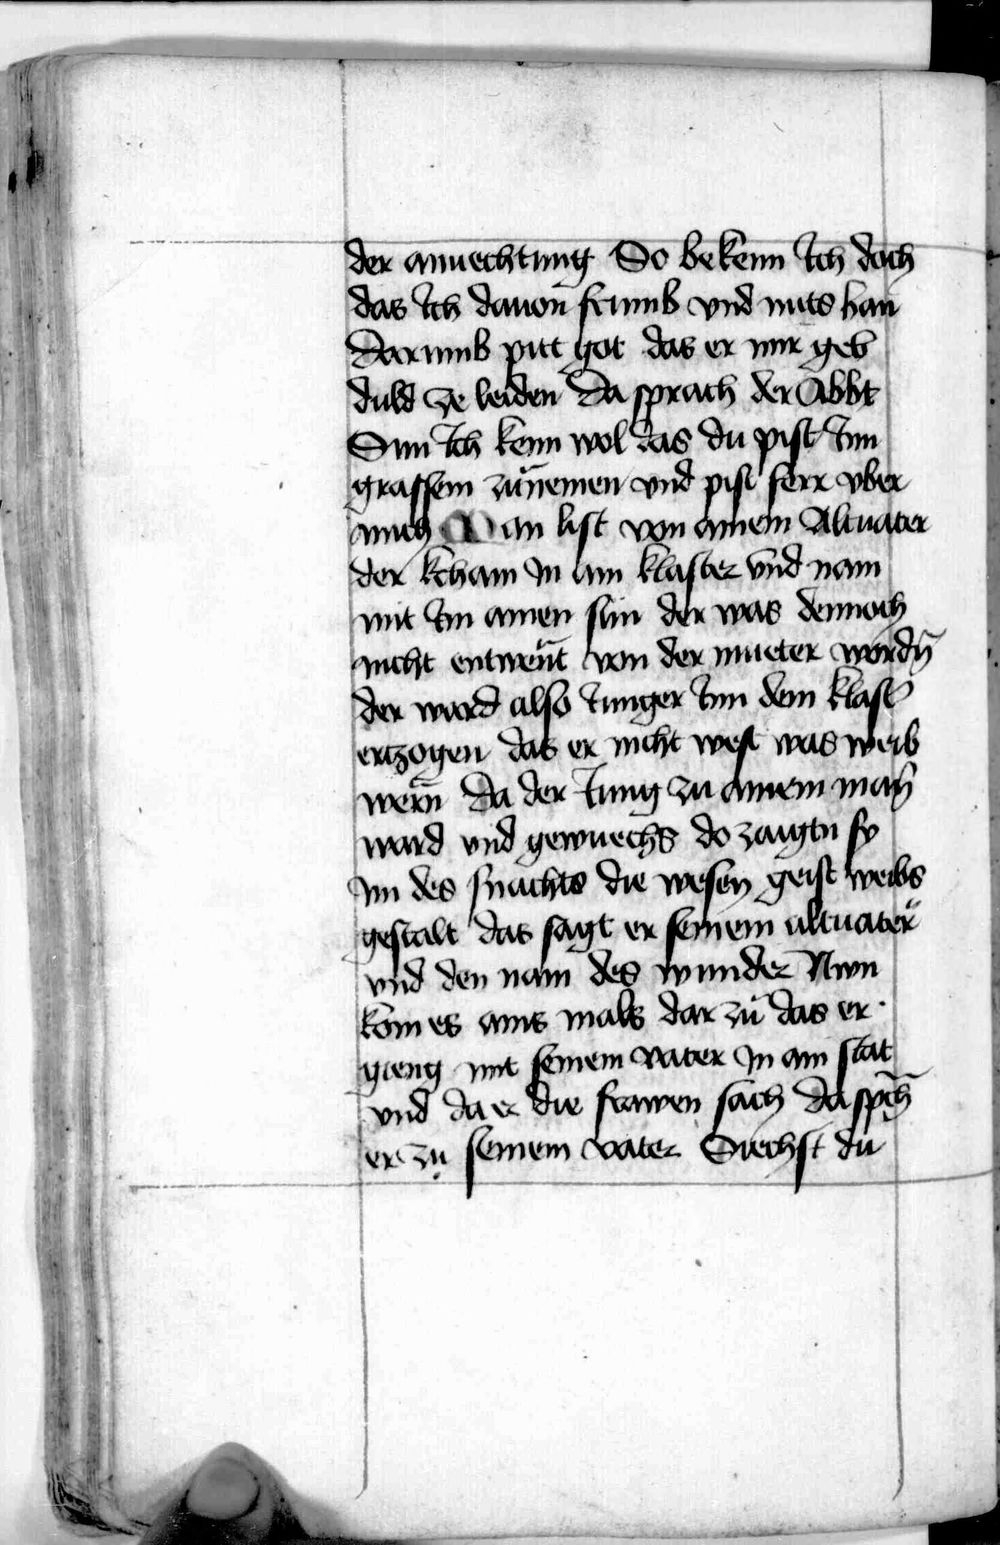 der anuechtung So bekenn Ich doch
das Ich dauon frumb vnd nuts han
Darumb pitt got das er mir geb
duld ze leiden Da sprach der Abbt
Sun Ich kenn wol das du pist Inn
grassem zůnemen vnd pist ferr vber
mich Man list von ainem Altuater
der kcham In ain klaster vnd nam
mit Im ainen sun der was dennoch
nicht entwent von der mueter wordn̄
der ward also Iunger Inn dem klast̄
ertzogen das er nicht west was weib
wern̄ Da der Iung zu ainem man̄
ward vnd gewuechs do zaigtn sy
Im des nachts die wesen geist weibs
gestalt das sagt er seinem altuater
vnd den nam des wunder Nwn
kom es ains mals dar zů das er
gieng mit seinem vater In ain stat
vnd da er die frawen sach da sp̄ch
er zu seinem vater Siechst du